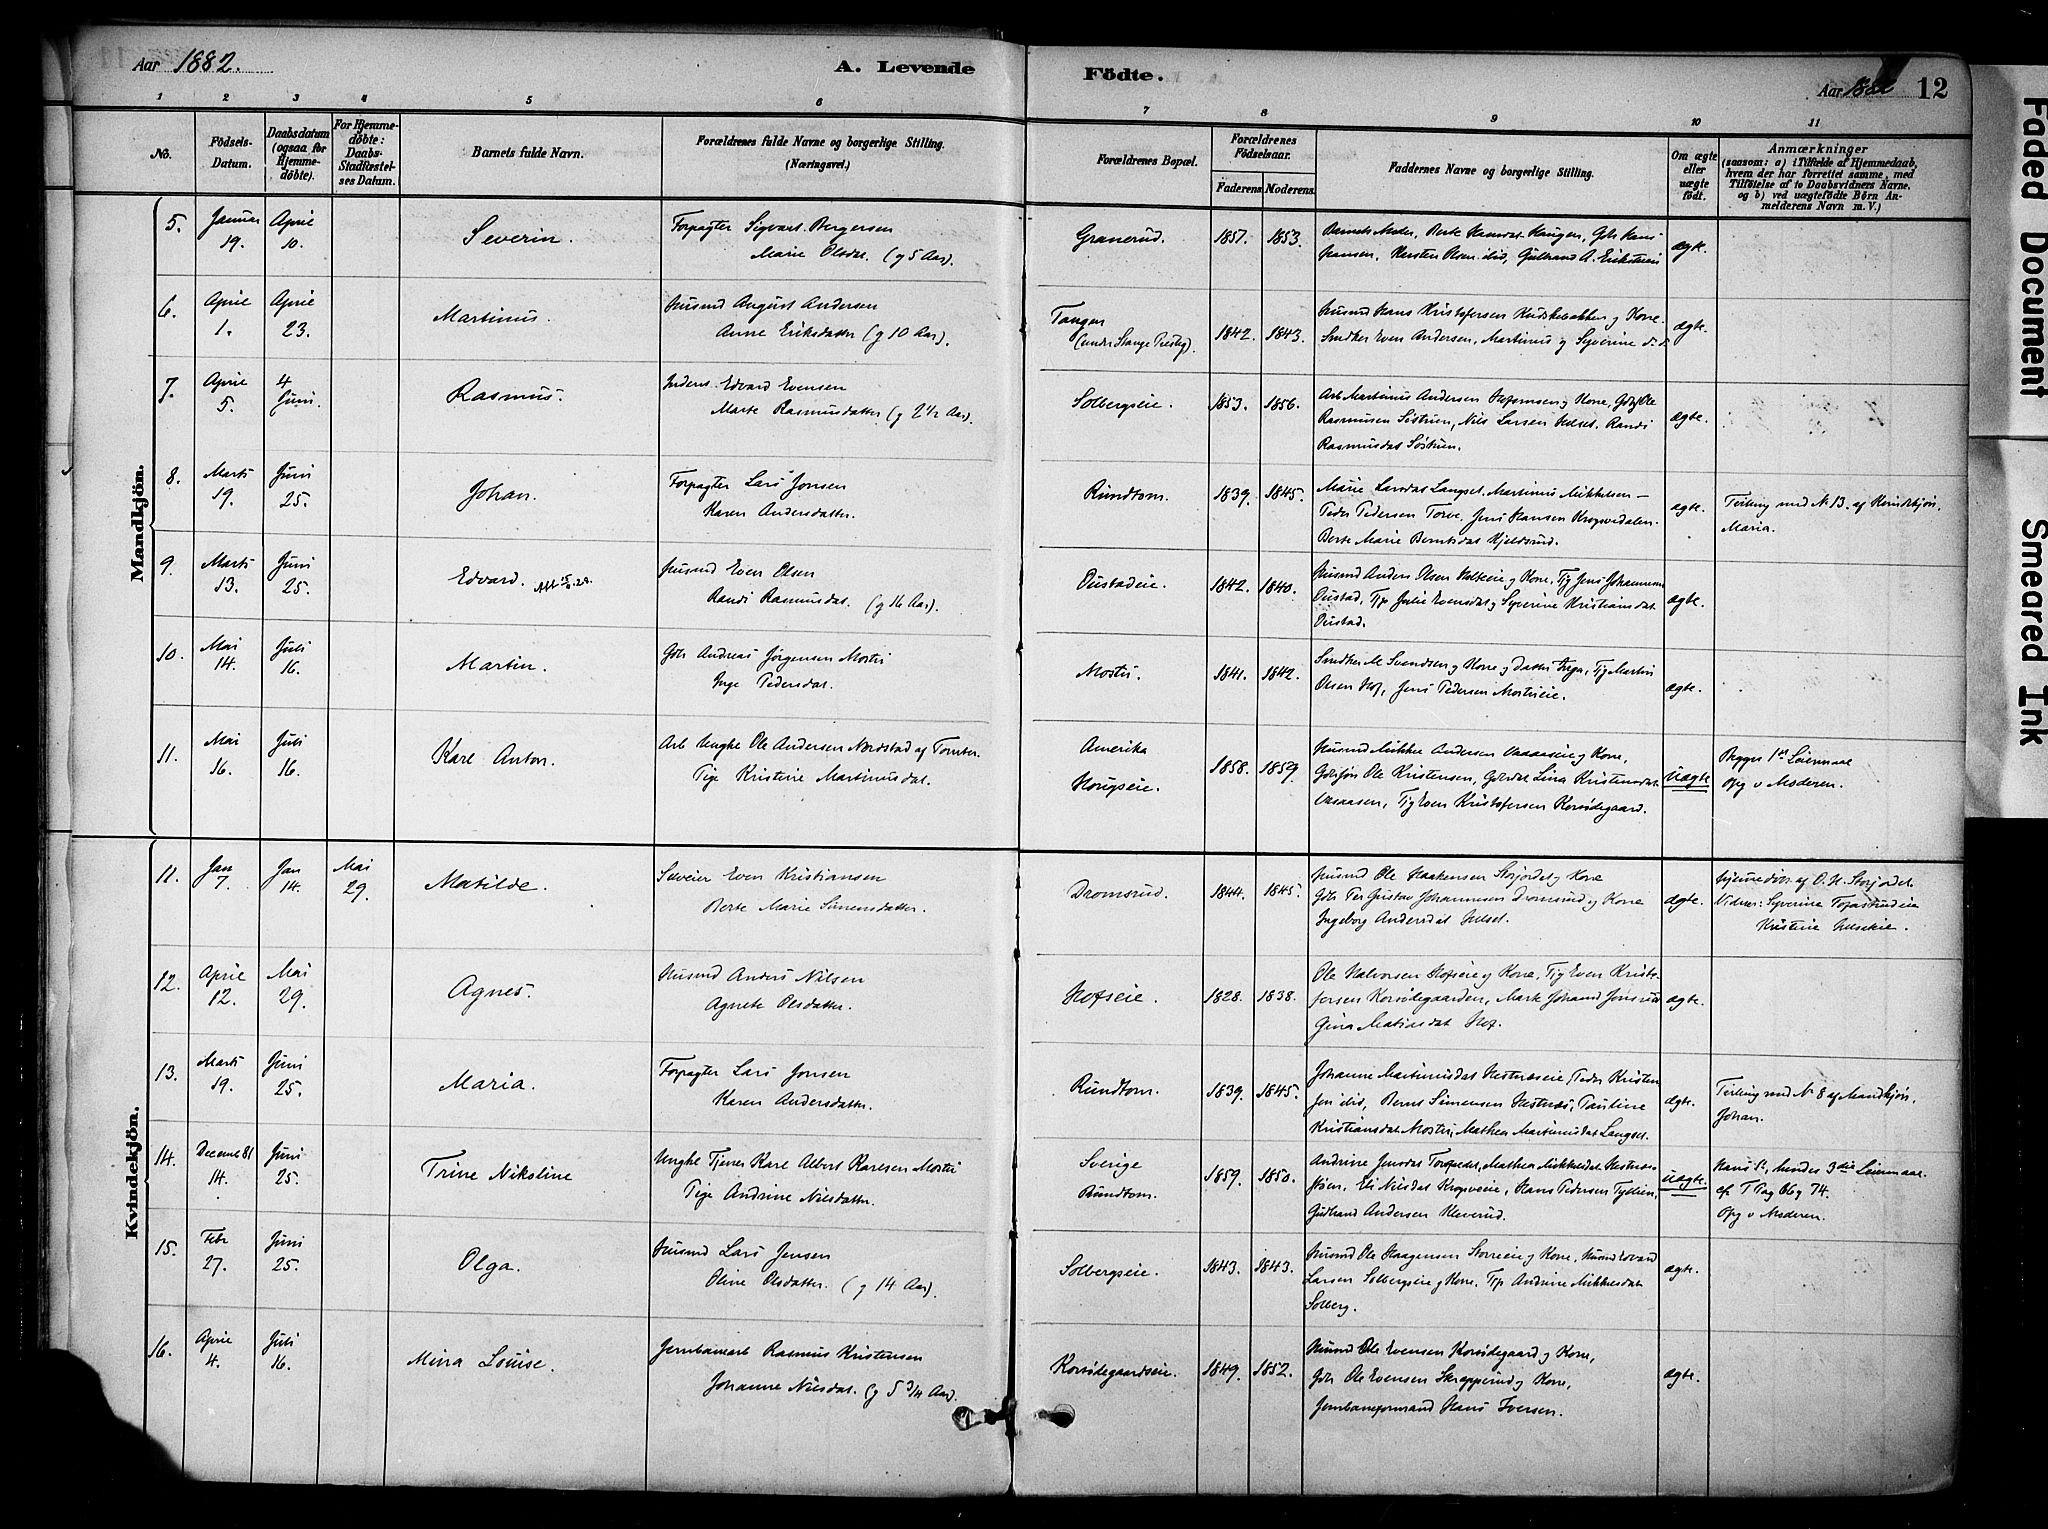 Aar 1882.
A. Levende
Födte.
Aar 1882
12
1 2 3 4 5 6 7 8 9 10 11
No.
Födsels-
Datum.
Daabsdatum
(ogsaa for
Hjemme-
döbte).
For Hjemme-
döbte:
Daabs-
Stadfæstel-
ses Datum.
Barnets fulde Navn.
Forældrenes fulde Navne og borgerlige Stilling.
(Næringsvei.)
Forældrenes Bopæl.
Forældrenes
Födselsaar.
Faderens Moderens.
Faddernes Navne og borgerlige Stilling.
Om ægte
eller
uægte
födt.
Anmærkninger
(saasom: a) i Tilfælde af Hjemmedaab,
hvem der har forrettet samme, med
Tilföielse af to Daabsvidners Navne,
og b) ved uægtefödte Börn An-
melderens Navn m. V.)
Mandkjön.
5. Januar 19. April 10. Severin. Forpagter Sigvart Bergersen
Marie Olsdat. (g 5 Aar).
Granerud. 1857. 1853.
Hansen, Karsten Olsen ibid, Gulbrand A.
ægte.
6. April 1. April 23. Martinus. Husmd August Andersen
Anne Eriksdatter (g 10 Aar).
Tangen
(under Stange Prestg). 1842. 1843. Husmd Hans Kristofersen
Snedker Even Andersen, Martinus og Syverine
ægte.
7. April 5. 4 Juni. Rasmus. Inderst. Edvard Evensen
Marte Rasmusdatter (g 2 1/2 Aar).
Solbergseie. 1853. 1856. Arb Martinus Andersen
Rasmussen Sostuen, Nils Larsen Helset, Randi
Rasmusdat Sostuen.
ægte.
8. Marts 19. Juni 25. Johan. Forpagter Lars Jonsen
Karen Andersdatter.
Rundtom. 1839. 1845. Marie Larsdat Langset, Martinus Mikkelsen –
Peder Pedersen Torve, Jens Hansen Kropvedalen.
Berte Marie Berntsdat Kjeldsrud.
ægte. Tvilling med N. 13. af Kvindekjön,
Maria.
9. Marts 13. Juni 25. Edvard. Husmd Even Olsen
Randi Rasmusdat. (g 16 Aar).
Oustadeie. 1842. 1840. Husmd Anders Olsen
Oustad, Tjp Julie Evensdat og Syverine Kristiansdat
Oustad.
ægte.
10. Mai 14. Juli 16. Martin. Gbr Andreas Jørgensen Mostu
Inge Pedersdat.
Mostu. 1841. 1842. Snedker M Svendsen og Kone og Datter Inga, Tjg Martin
Olsen Hof, Jens Pedersen Mostueie.
ægte.
11. Mai 16. Juli 16. Karl Anton. Arb Ungke Ole Andersen Nordstad af Tomter.
Pige Kristine Martinusdat.
Amerika
Hougseie. 1858. 1859. Husmd Mikkel Andersen
Gbrsøn Ole Kristensen, Gbrdat Lina Kristensdat
Tjg Even Kristofersen Korsødegaard.
uægte Begges 1ste Leiermaal
Opg v Moderen.
Kvindekjön.
11. Jan 7. Jan 14. Mai 29. Matilde. Selveier Even Kristiansen
Berte Marie Simensdatter.
Dromsrud. 1844. 1845. Husmd Ole Haakensen Storjordet og Kone
Gbr Per Gustav Johannesen Dromsrud og Kone
Ingeborg Andersdat Helset.
ægte. Hjemmedøbt af O. H. Storjordet.
Vidner: Syverine
Kristine Helseteie.
12. April 12. Mai 29. Agnes. Husmd Anders Nilsen
Agnete Olsdatter.
Hofseie. 1828. 1838. Ole Halvorsen Hofseie og Kone, Tjg Even Kristo-
fersen Korsødegaarden, Marte Johand
Gina Matiasdat Hof.
ægte.
13. Marts 19. Juni 25. Maria. Forpagter Lars Jonsen
Karen Andersdatter.
Rundtom. 1839. 1845. Johanne Martinusdat Hestnæseie, Peder Kristen
sen ibid, Bernt Simensen Hestnæs, Pauline
Kristiansdat Mostu, Mathea Martinusdat Langset.
ægte. Tvilling med N 8 af Mandkjön,
Johan.
14. Decembr 81 14. Juni 25. Trine Nikoline Ungke Tjener Karl Albert Karlsen Mostu
Pige Andrine Nilsdatter.
Sverige
Rundtom. 1859. 1850. Andrine Jensdat Torpedet, Mathea Mikkelsdat
Eli Nilsdat Kropveie, Hans Pedersen
Gudbrand Andersen Kleverud.
uægte. Hans 1ste, hendes 3die Leiermaal.
cf. T Pag 66 og 74.
Opg v Moderen.
15. Febr 27. Juni 25. Olga. Husmd Lars Jensen
Oline Olsdatter. (g 14 Aar).
Solbergseie. 1843. 1843. Husmd Ole Haagensen Storreie og Kone, Husmd Edvard
Larsen Solbergseie og Kone, Tjp Andrine Mikkelsdat
Solberg.
ægte.
16. April 4. Juli 16. Mina Louise. Jernbanearb Rasmus Kristensen
Johanne Nilsdat. (g 5 3/4 Aar).
Korsødegaardseie. 1849. 1852. Husmd Ole Evensen Korsødegaard og Kone,
Gbr Ole Evensen Skrapperud og Kone,
Jernbaneformand Hans Iversen.
ægte.
Faded Document
Smeared Ink